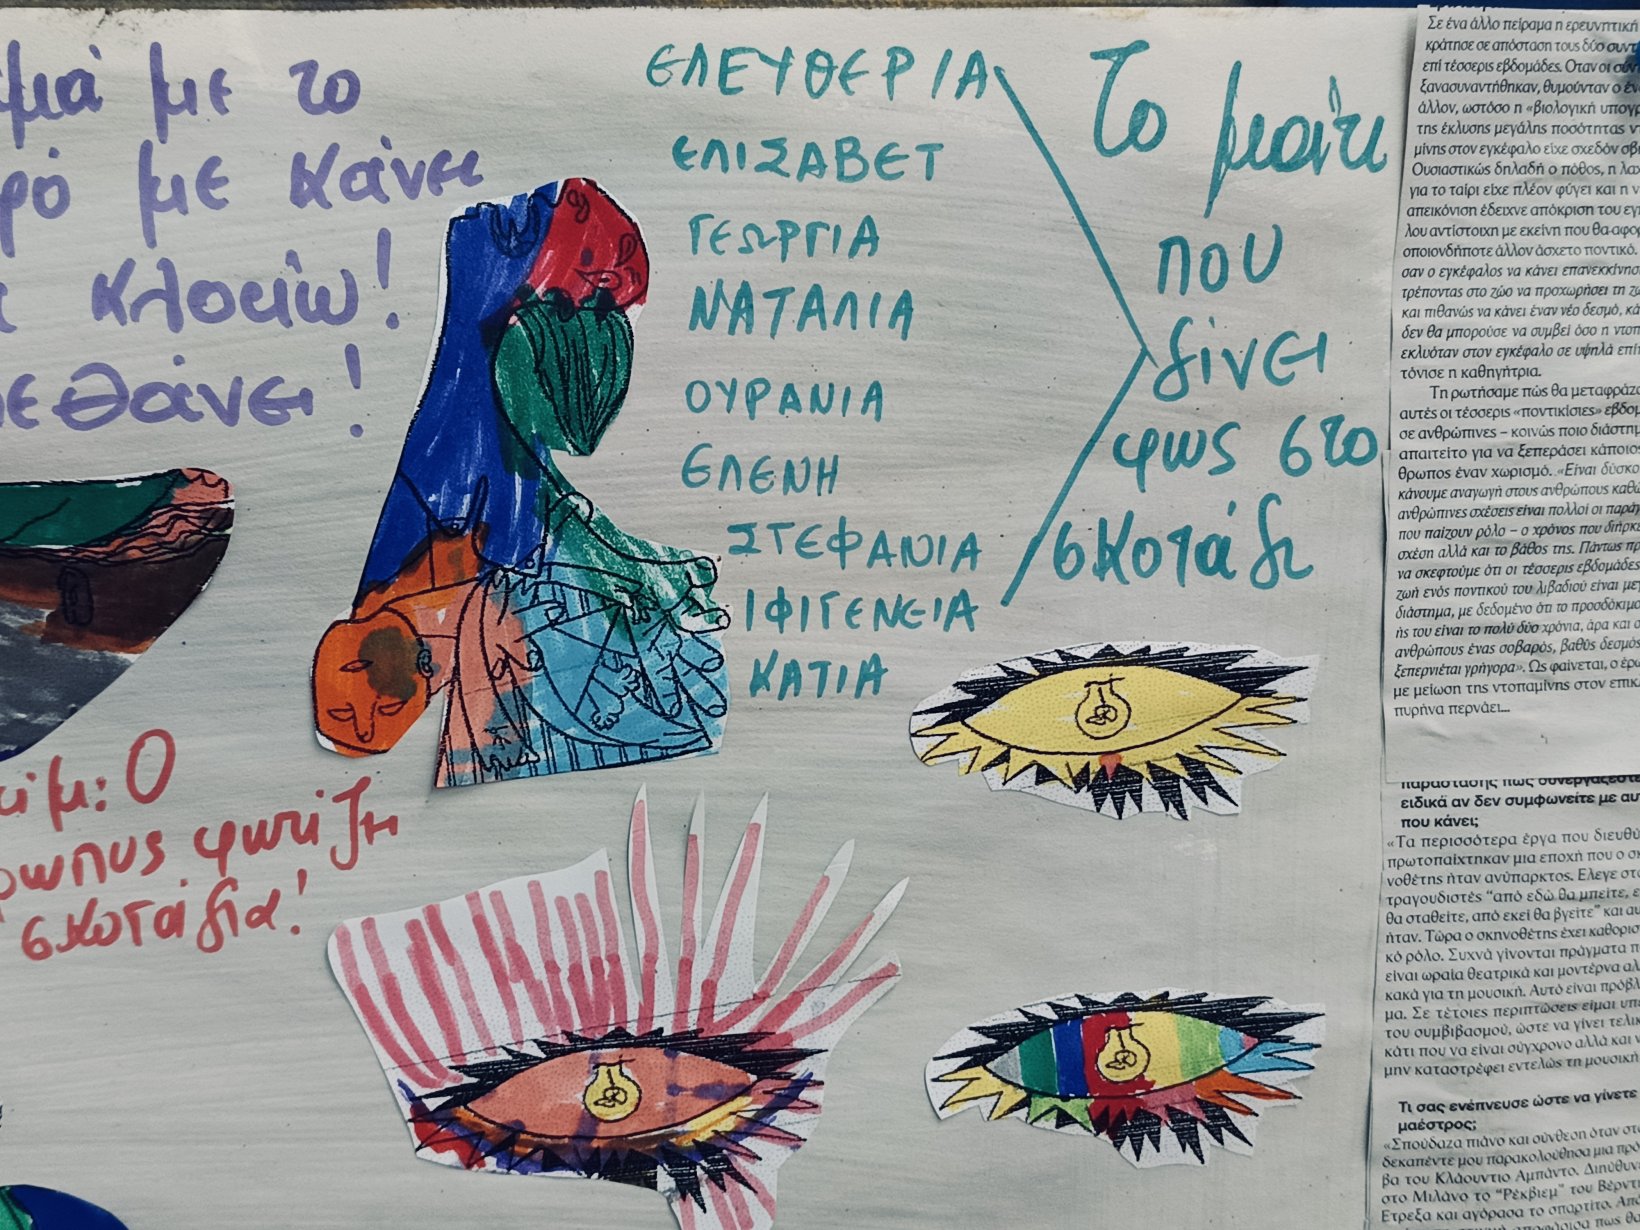 με το
με κάνει
κλοτώ!
πεθάνει!
ΕΛΕΥΘΕΡΙΑ
ΕΛΙΣΑΒΕΤ
ΓΕΩΡΓΙΑ
ΝΑΤΑΛΙΑ
ΟΥΡΑΝΙΑ
ΕΛΕΝΗ
ΣΤΕΦΑΝΙΑ
ΙΦΙΓΕΝΕΙΑ
ΚΑΤΙΑ
Το μάτι
που
δίνει
φως στο
σκοτάδι
Ο
φωτίζει
σκοτάδια!
Σε ένα άλλο πείραμα η ερευνητική
κράτησε σε απόσταση τους δύο
επί τέσσερις εβδομάδες. Οταν οι
ξανασυναντήθηκαν, θυμούνταν ο
άλλον, ωστόσο η «βιολογική
της έκλυσης μεγάλης ποσότητας
μίνης στον εγκέφαλο είχε σχεδόν
Ουσιαστικώς δηλαδή ο πόθος, η
για το ταίρι είχε πλέον φύγει και η
απεικόνιση έδειχνε απόκριση του
λου αντίστοιχη με εκείνη που θα
οποιονδήποτε άλλον άσχετο ποντικό.
σαν ο εγκέφαλος να κάνει
τρέποντας στο ζώο να προχωρήσει τη
και πιθανώς να κάνει έναν νέο δεσμό,
δεν θα μπορούσε να συμβεί όσο η
εκλυόταν στον εγκέφαλο σε υψηλά
τόνισε η καθηγήτρια.
Τη ρωτήσαμε πώς θα
αυτές οι τέσσερις «ποντικίσιες»
σε ανθρώπινες – κοινώς ποιο
απαιτείτο για να ξεπεράσει
θρωπος έναν χωρισμό. «Είναι
κάνουμε αναγωγή στους ανθρώπους
ανθρώπινες σχέσεις είναι πολλοί οι
– που παίζουν ρόλο – ο χρόνος που
σχέση αλλά και το βάθος της. Πάντως
να σκεφτούμε ότι οι τέσσερις εβδομάδες
ζωή ενός ποντικού του λιβαδιού είναι
διάστημα, με δεδομένο ότι το
ής του είναι το πολύ δύο χρόνια, άρα και
ανθρώπους ένας σοβαρός, βαθύς
ξεπερνιέται γρήγορα». Ως φαίνεται, ο
με μείωση της ντοπαμίνης στον
πυρήνα περνάει...
παράστασης πώς συνεργάζεστε
ειδικά αν δεν συμφωνείτε με
που κάνει;
«Τα περισσότερα έργα που
πρωτοπαίχτηκαν μια εποχή που ο
νοθέτης ήταν ανύπαρκτος. Ελεγε
τραγουδιστές “από εδώ θα μπείτε,
θα σταθείτε, από εκεί θα βγείτε” και
ήταν. Τώρα ο σκηνοθέτης έχει
κό ρόλο. Συχνά γίνονται πράγματα
είναι ωραία θεατρικά και μοντέρνα
κακά για τη μουσική. Αυτό είναι
μα. Σε τέτοιες περιπτώσεις είμαι
του συμβιβασμού, ώστε να γίνει
κάτι που να είναι σύγχρονο αλλά και
μην καταστρέφει εντελώς τη μουσική
Τι σας ενέπνευσε ώστε να γίνετε
μαέστρος;
«Σπούδαζα πιάνο και σύνθεση όταν
δεκαπέντε μου παρακολούθησα μια
βα του Κλάουντιο Αμπάντο.
στο Μιλάνο το “Ρέκβιεμ” του
Ετρεξα και αγόρασα το σπαρτίτο.